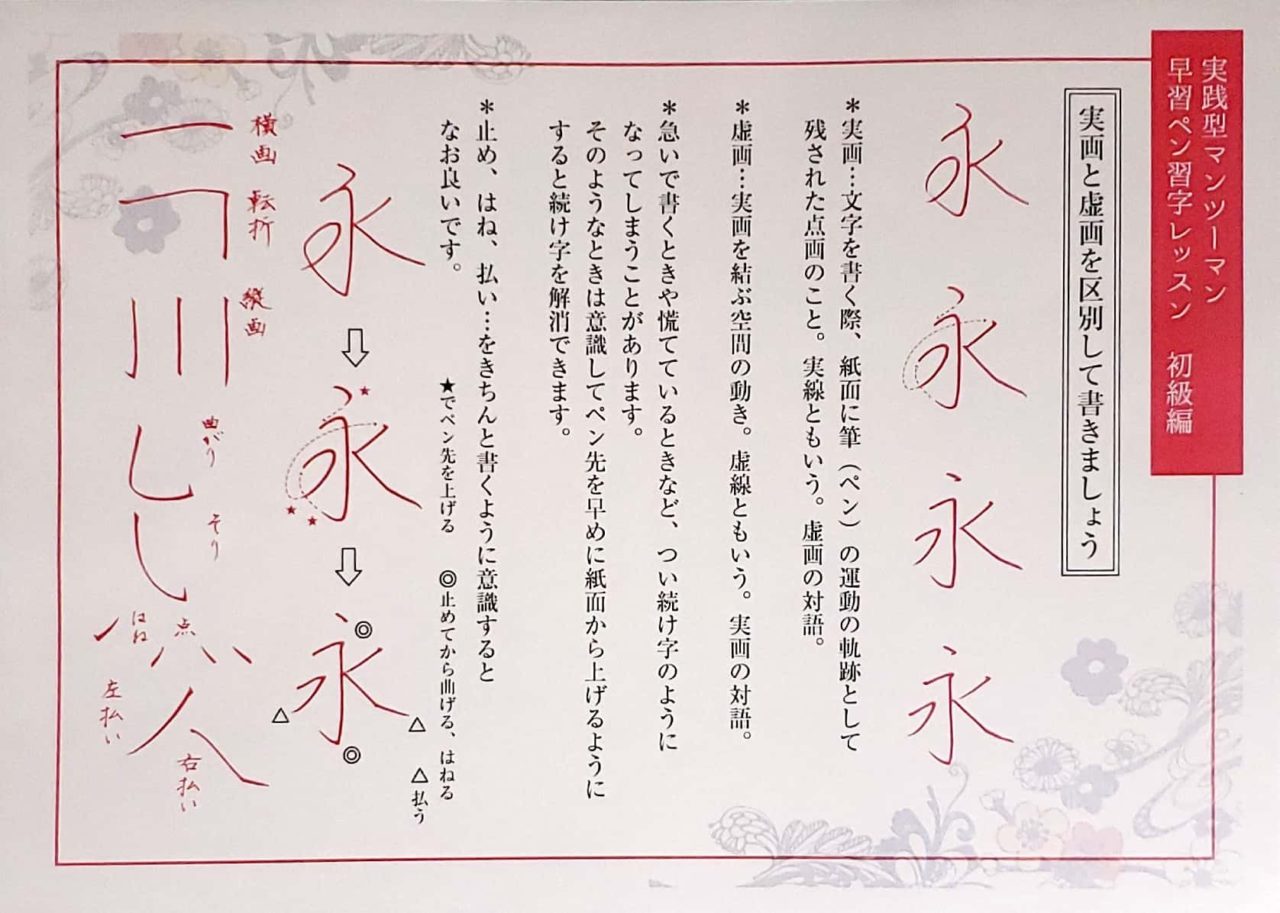 実践型マンツーマン
早習ペン習字レッスン　初級編
実画と虚画を区別して書きましょう
永 永 永 永
＊実画…文字を書く際、紙面に筆（ペン）の運動の軌跡として
残された点画のこと。実線ともいう。虚画の対語。
＊虚画…実画を結ぶ空間の動き。虚線ともいう。実画の対語。
＊急いで書くときや慌てているときなど、つい続け字のように
なってしまうことがあります。
そのようなときは意識してペン先を早めに紙面から上げるように
すると続け字を解消できます。
＊止め、はね、払い…をきちんと書くように意識すると
なお良いです。
★でペン先を上げる　◎止めてから曲げる、はねる
△払う
永⇩永⇩永
横画　転折　縦画
曲がり　そり
点
はね
左払い
右払い